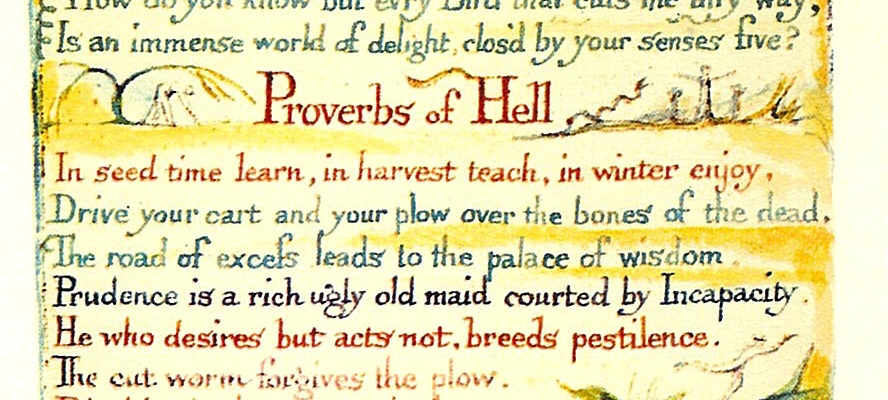 How do you know but ev'ry Bird that cuts the airy way,
Is an immense world of delight, clos'd by your senses five?
Proverbs of Hell
In seed time learn, in harvest teach, in winter enjoy.
Drive your cart and your plow over the bones of the dead.
The road of excess leads to the palace of wisdom
Prudence is a rich ugly old maid courted by Incapacity.
He who desires but acts not, breeds pestilence.
The cut worm forgives the plow.